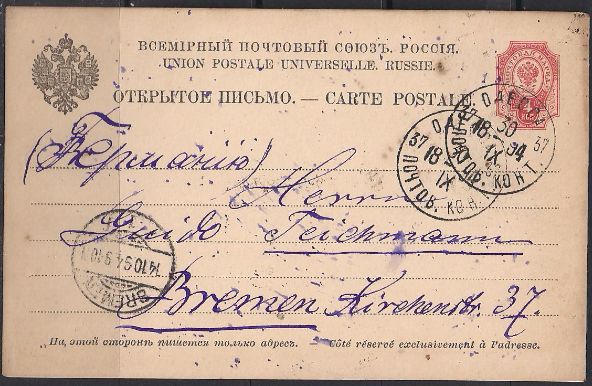 ВСЕМІРНЫЙ ПОЧТОВЫЙ СОЮЗЪ. РОССІЯ.
UNION POSTALE UNIVERSELLE. RUSSIE.
ОТКРЫТОЕ ПИСЬМО. — CARTE POSTALE
(Германію)
Herrn
Guido Teichmann
Bremen Kirchenstr. 37.
ОДЕССА
30
18 94
IX
37
ПОЧТОВ. КОН.
ОДЕ
37
18
IX
ПОЧТОВ. КОН.
BREMEN
14.10.94.9-10
На этой сторонѣ пишется только адресъ. Côté réservé exclusivement à l'adresse.